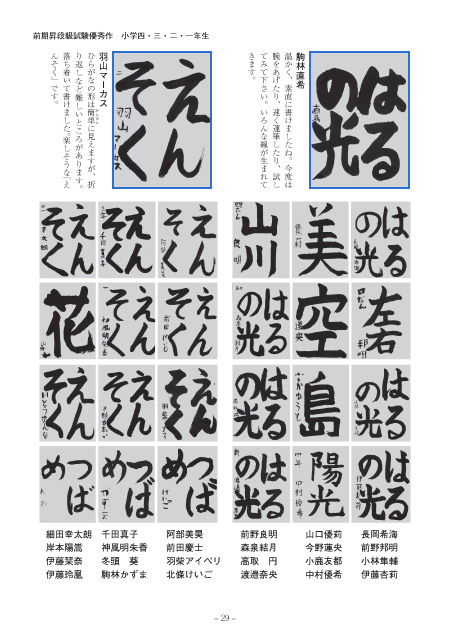 前期昇段級試験優秀作　小学四・三・二・一年生
駒林直希
温かく、素直に書けましたね。今度は
腕をあげたり、速く運筆したり、試し
てみて下さい。いろんな線が生まれて
きます。
はる
の光
直希
羽山マーカス
ひらがなの形は簡単に見えますが、折
り返しなど難しいところがあります。
落ち着いて書けました。楽しそうな「え
んそく」です。
えん
そく
二
羽山マーカス
はる
の光
美
山川
えん
そく
えん
そく
えん
そく
左右
空
はる
の光
えん
そく
えん
そく
花
はる
の光
島
はる
の光
えん
そく
えん
そく
えん
そく
はる
の光
陽光
四年 中村優希
はる
の光
つば
め
けいご
つば
め
かずま
つば
め
れお
長岡希海
前野邦明
小林隼輔
伊藤杏莉
山口優莉
今野蓮央
小鹿友都
中村優希
前野良明
森泉結月
高取　円
渡邉奈央
阿部美昊
前田慶士
羽柴アイベリ
北條けいご
千田真子
神風明朱香
冬頭　葵
駒林かずま
細田幸太朗
岸本陽嵩
伊藤栞奈
伊藤玲凰
– 29 –